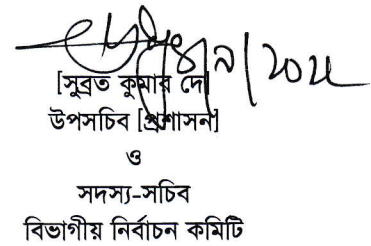 [সুব্রত কুমার দে]
উপসচিব [প্রশাসন]
ও
সদস্য-সচিব
বিভাগীয় নির্বাচন কমিটি